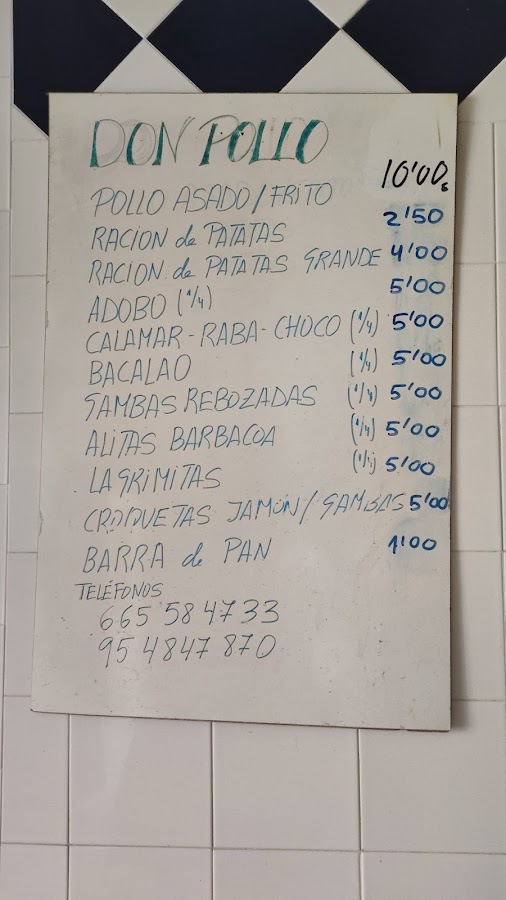 DON POLLO
POLLO ASADO/FRITO 10'00
RACION de PATATAS 2'50
RACION de PATATAS GRANDE 4'00
ADOBO (1/4) 5'00
CALAMAR-RABA-CHOCO (1/4) 5'00
BACALAO (1/4) 5'00
GAMBAS REBOZADAS (1/4) 5'00
ALITAS BARBACOA (1/4) 5'00
LAGRIMITAS (1/4) 5'00
CROQUETAS JAMÓN/GAMBAS 5'00
BARRA de PAN 1'00
TELÉFONOS
665 58 47 33
95 4847 870